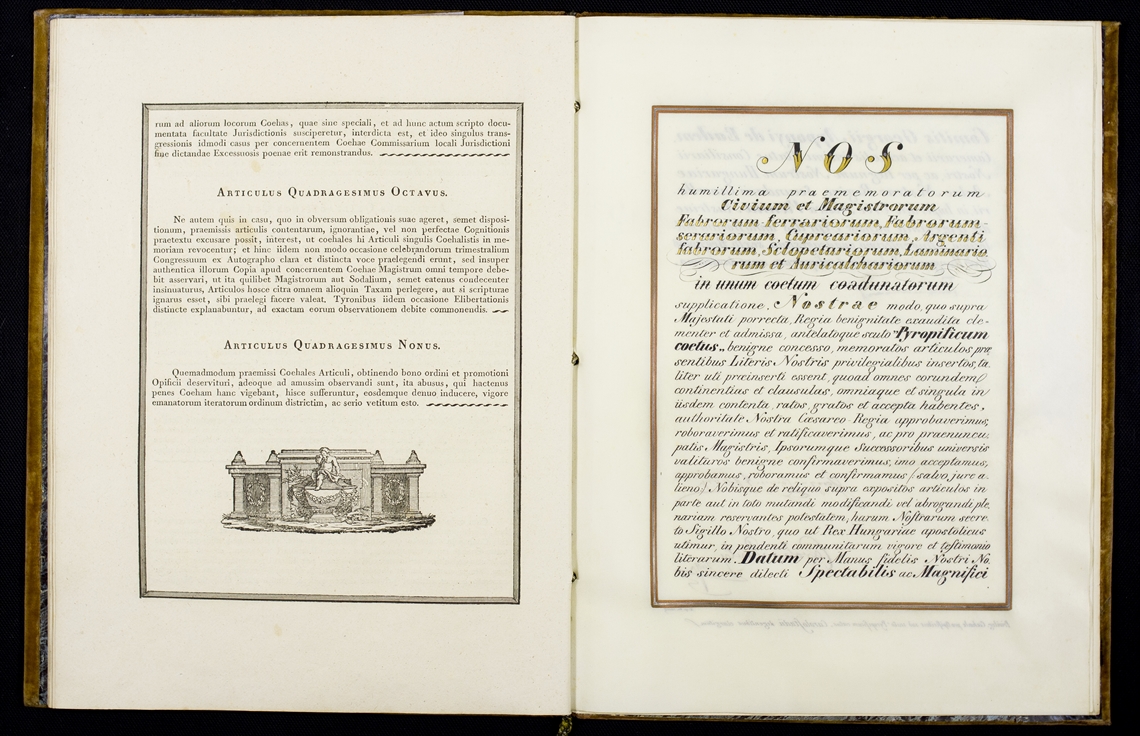 rum ad aliorum locorum Coehas, quae sine speciali, et ad hunc actum scripto docu-
mentata facultate Jurisdictionis susciperetur, interdicta est, et ideo singulus trans-
gressionis idmodi casus per concernentem Coehae Commissarium locali Jurisdictioni
fine dictandae Excessuosis poenae erit remonstrandus.
Articulus Quadragesimus Octavus.
Ne autem quis in casu, quo in obversum obligationis suae ageret, semet disposi-
tionum, praemissis articulis contentarum, ignorantiae, vel non perfectae Cognitionis
praetextu excusare possit, interest, ut coehales hi Articuli singulis Coehalistis in me-
moriam revocentur; et hinc iidem non modo occasione celebrandorum trimestralium
Congressuum ex Autographo clara et distincta voce praelegendi erunt, sed insuper
authentica illorum Copia apud concernentem Coehae Magistrum omni tempore debe-
bit asservari, ut ita quilibet Magistrorum aut Sodalium, semet eatenus condecenter
insinuaturus, Articulos hosce citra omnem alioquin Taxam perlegere, aut si scripturae
ignarus esset, sibi praelegi facere valeat. Tyronibus iidem occasione Elibertationis
distincte explanabuntur, ad exactam eorum observationem debite commonendis.
Articulus Quadragesimus Nonus.
Quemadmodum praemissi Coehales Articuli, obtinendo bono ordini et promotioni
Opificii deservituri, adeoque ad amussim observandi sunt, ita abusus, qui hactenus
penes Coeham hanc vigebant, hisce sufferuntur, eosdemque denuo inducere, vigore
emanatorum iteratorum ordinum districtim, ac serio vetitum esto.
NOS
humillima praememoratorum
Civium et Magistrorum
Fabrorum ferrariorum, Fabrorum-
serariorum, Cupreariorum, Argenti
fabrorum, Sclopetariorum, Laminario
rum et Auricalchariorum
in unum coetum coadunatorum
supplicatione, Nostrae modo, quo supra
Majestati porrecta, Regia benignitate exaudita cle-
menter et admissa, antelatoque scuto Pyropificum
coetus„ benigne concesso, memoratos articulos præ
sentibus Literis Nostris privilegialibus insertos, ta
liter uti præinserti essent, quoad omnes eorundem
continentias et clausulas, omniaque et singula in
iisdem contenta, ratos, gratos et accepta habentes,
authoritate Nostra Cæsareo Regia approbaverimus,
roboraverimus et ratificaverimus, ac pro praenuncu.
patis Magistris, Ipsorumque Successoribus universis
valituros benigne confirmaverimus, imo acceptamus,
approbamus, roboramus et confirmamus (salvo jure a-
lieno) Nobisque de reliquo supra expositos articulos in
parte aut in toto mutandi modificandi vel abrogandi ple.
nariam reservantes potestatem, harum Nostrarum secre
to Sigillo Nostro, quo ut Rex Hungariae apostolicus
utimur, in pendenti communitarum vigore et testimonio
literarum. Datum per Manus fidelis Nostri No.
bis sincere dilecti Spectabilis ac Magnifici